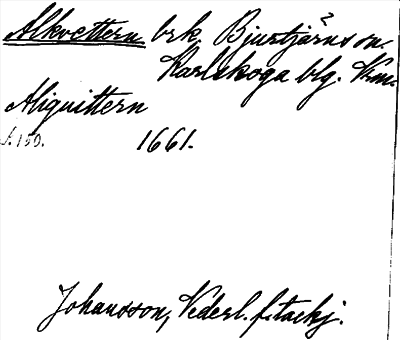 Alkvettern brk. Bjurtjärns sn.
Karlskoga blg. Vrm.
Aliquittern
s. 150. 1661.
Johansson, Vederl. f. tackj.